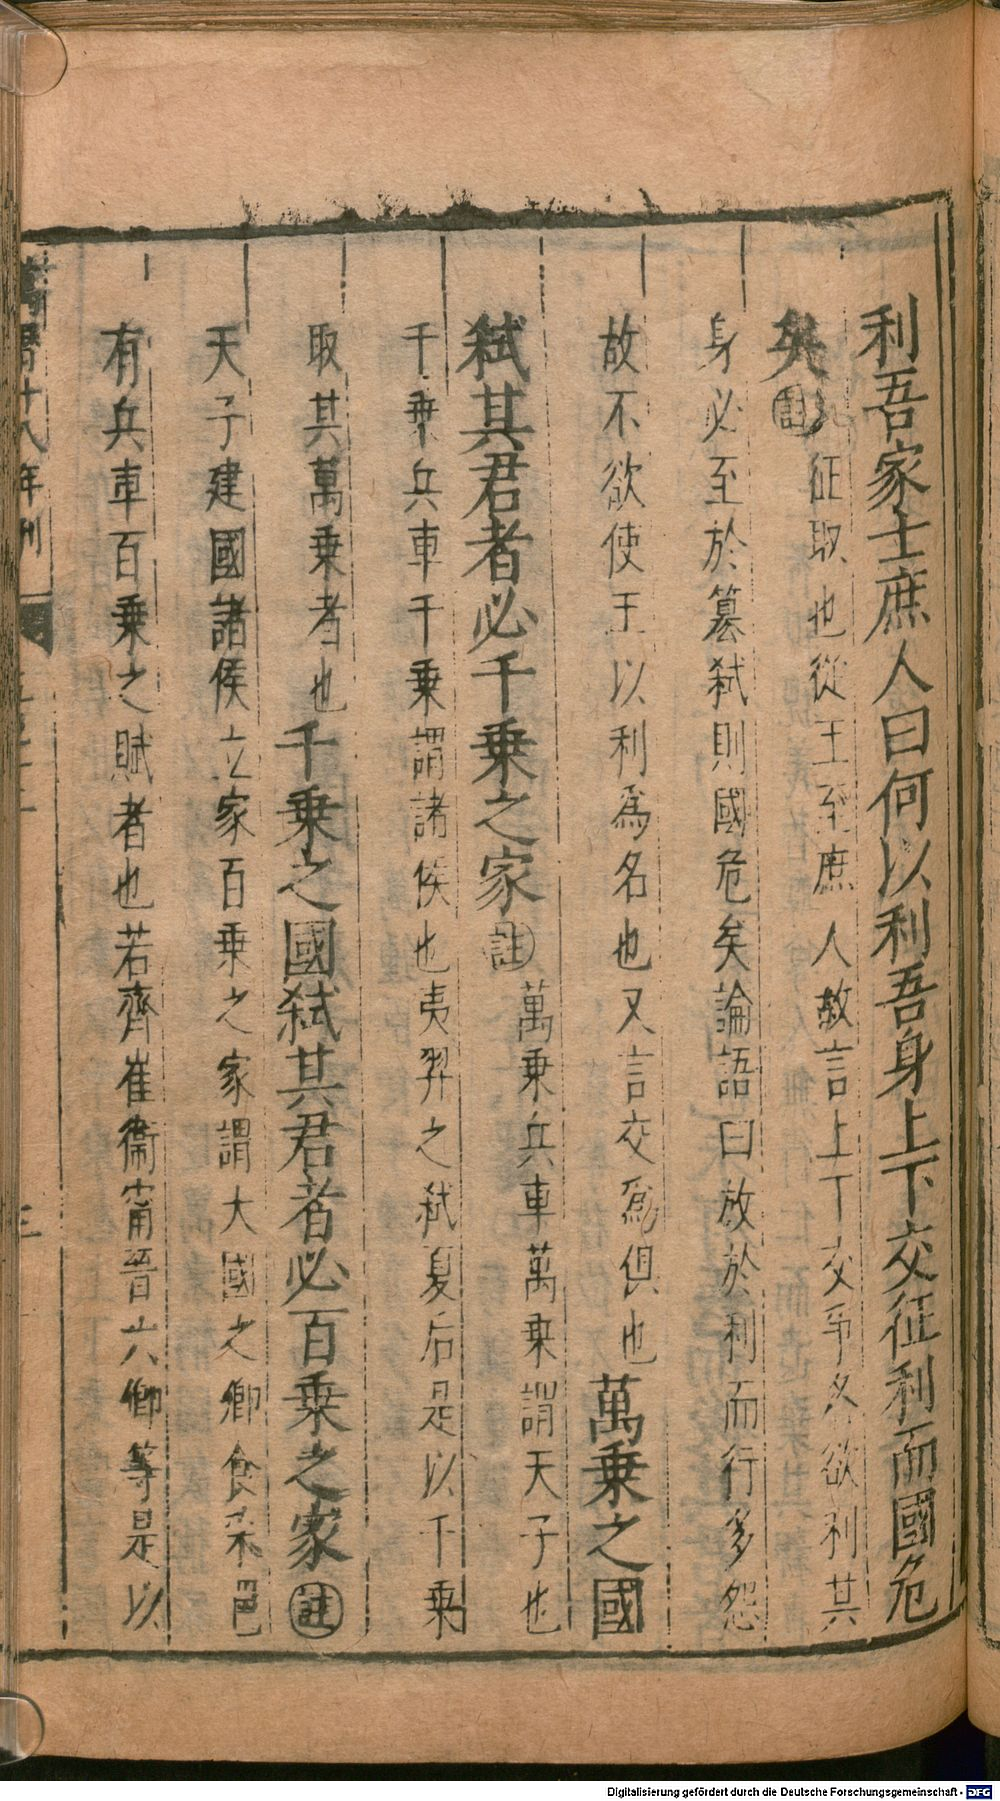 利吾家士庶人曰何以利吾身上下交征利而國危
矣註征取也從王至庶人故言上下交爭各欲利其
身必至於篡弒則國危矣論語曰放於利而行多怨
故不欲使王以利爲名也又言交爲俱也萬乗之國
弒其君者必千乗之家註萬乗兵車萬乗謂天子也
千乗兵車千乗謂諸侯也夷羿之弒夏后是以千乗
取其萬乗者也千乗之國弒其君者必百乗之家註
天子建國諸侯立家百乗之家謂大國之卿食采邑
有兵車百乗之賦者也若齊崔衞甯晉六卿等是以
萬曆十八年刊
Digitalisierung gefördert durch die Deutsche Forschungsgemeinschaft - DFG